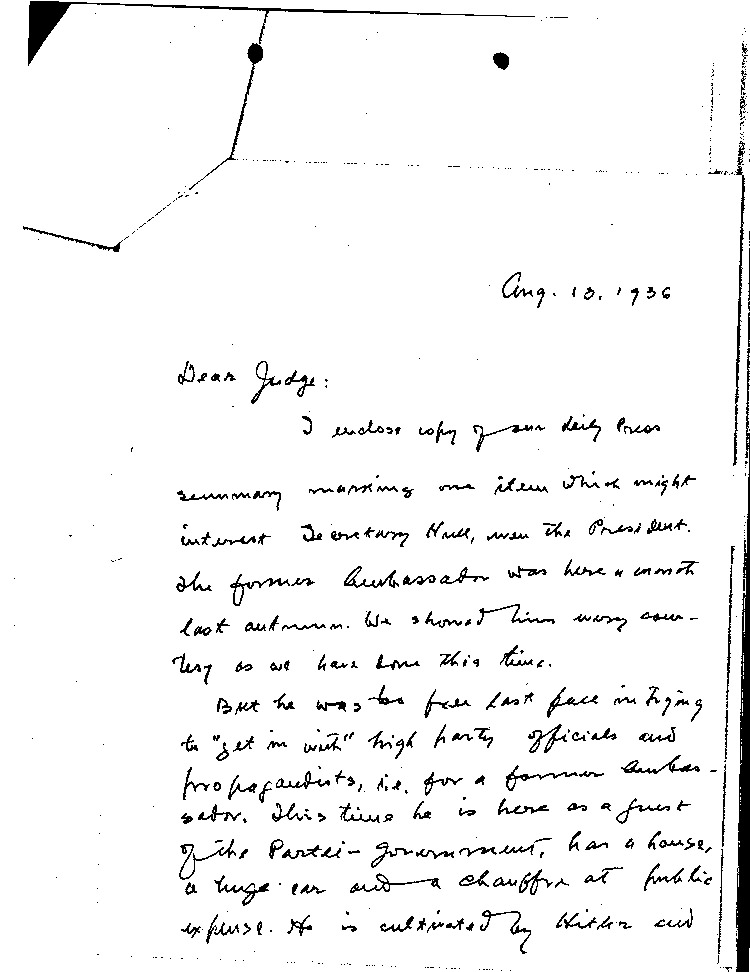 Aug. 13. 1936
Dear Judge:
I enclose copy of our daily Press
summary marking one item which might
interest Secretary Hull, even the President.
The former Ambassador was here a month
last autumn. We showed him every cour-
tesy as we have done this time.
But he was too free last fall in trying
to "get in with" high party officials and
propagandists, i.e. for a former Ambas-
sador. This time he is here as a guest
of the Partei-Government, has a house,
a huge car and a chauffer at public
expense. He is cultivated by Hitler and